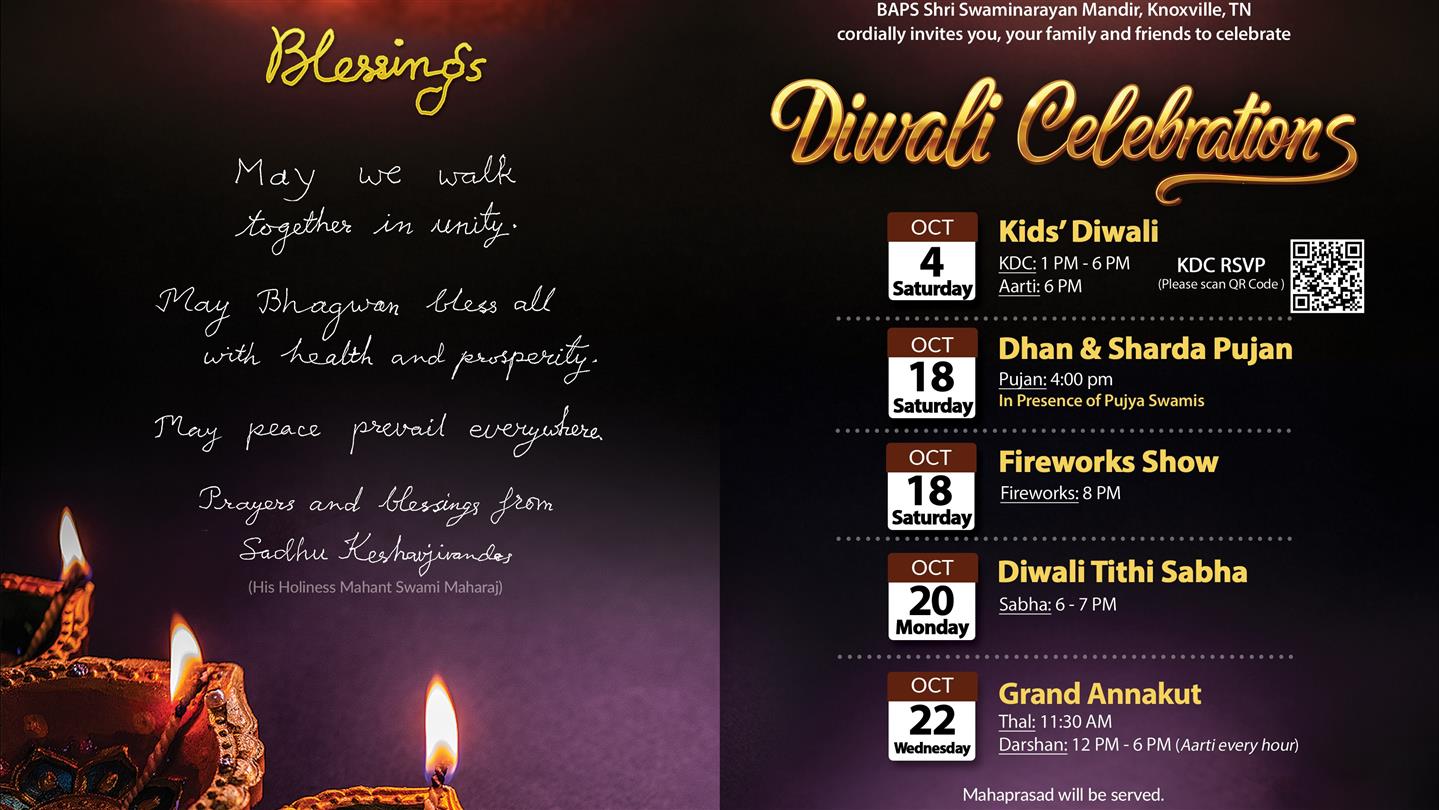 Blessings
May we walk
together in unity.
May Bhagwan bless all
with health and prosperity.
May peace prevail everywhere.
Prayers and blessings from
Sadhu Keshavjivandas
(His Holiness Mahant Swami Maharaj)
BAPS Shri Swaminarayan Mandir, Knoxville, TN
cordially invites you, your family and friends to celebrate
Diwali Celebrations
OCT
4
Saturday
Kids’ Diwali
KDC: 1 PM - 6 PM
Aarti: 6 PM
KDC RSVP
(Please scan QR Code )
OCT
18
Saturday
Dhan & Sharda Pujan
Pujan: 4:00 pm
In Presence of Pujya Swamis
OCT
18
Saturday
Fireworks Show
Fireworks: 8 PM
OCT
20
Monday
Diwali Tithi Sabha
Sabha: 6 - 7 PM
OCT
22
Wednesday
Grand Annakut
Thal: 11:30 AM
Darshan: 12 PM - 6 PM (Aarti every hour)
Mahaprasad will be served.